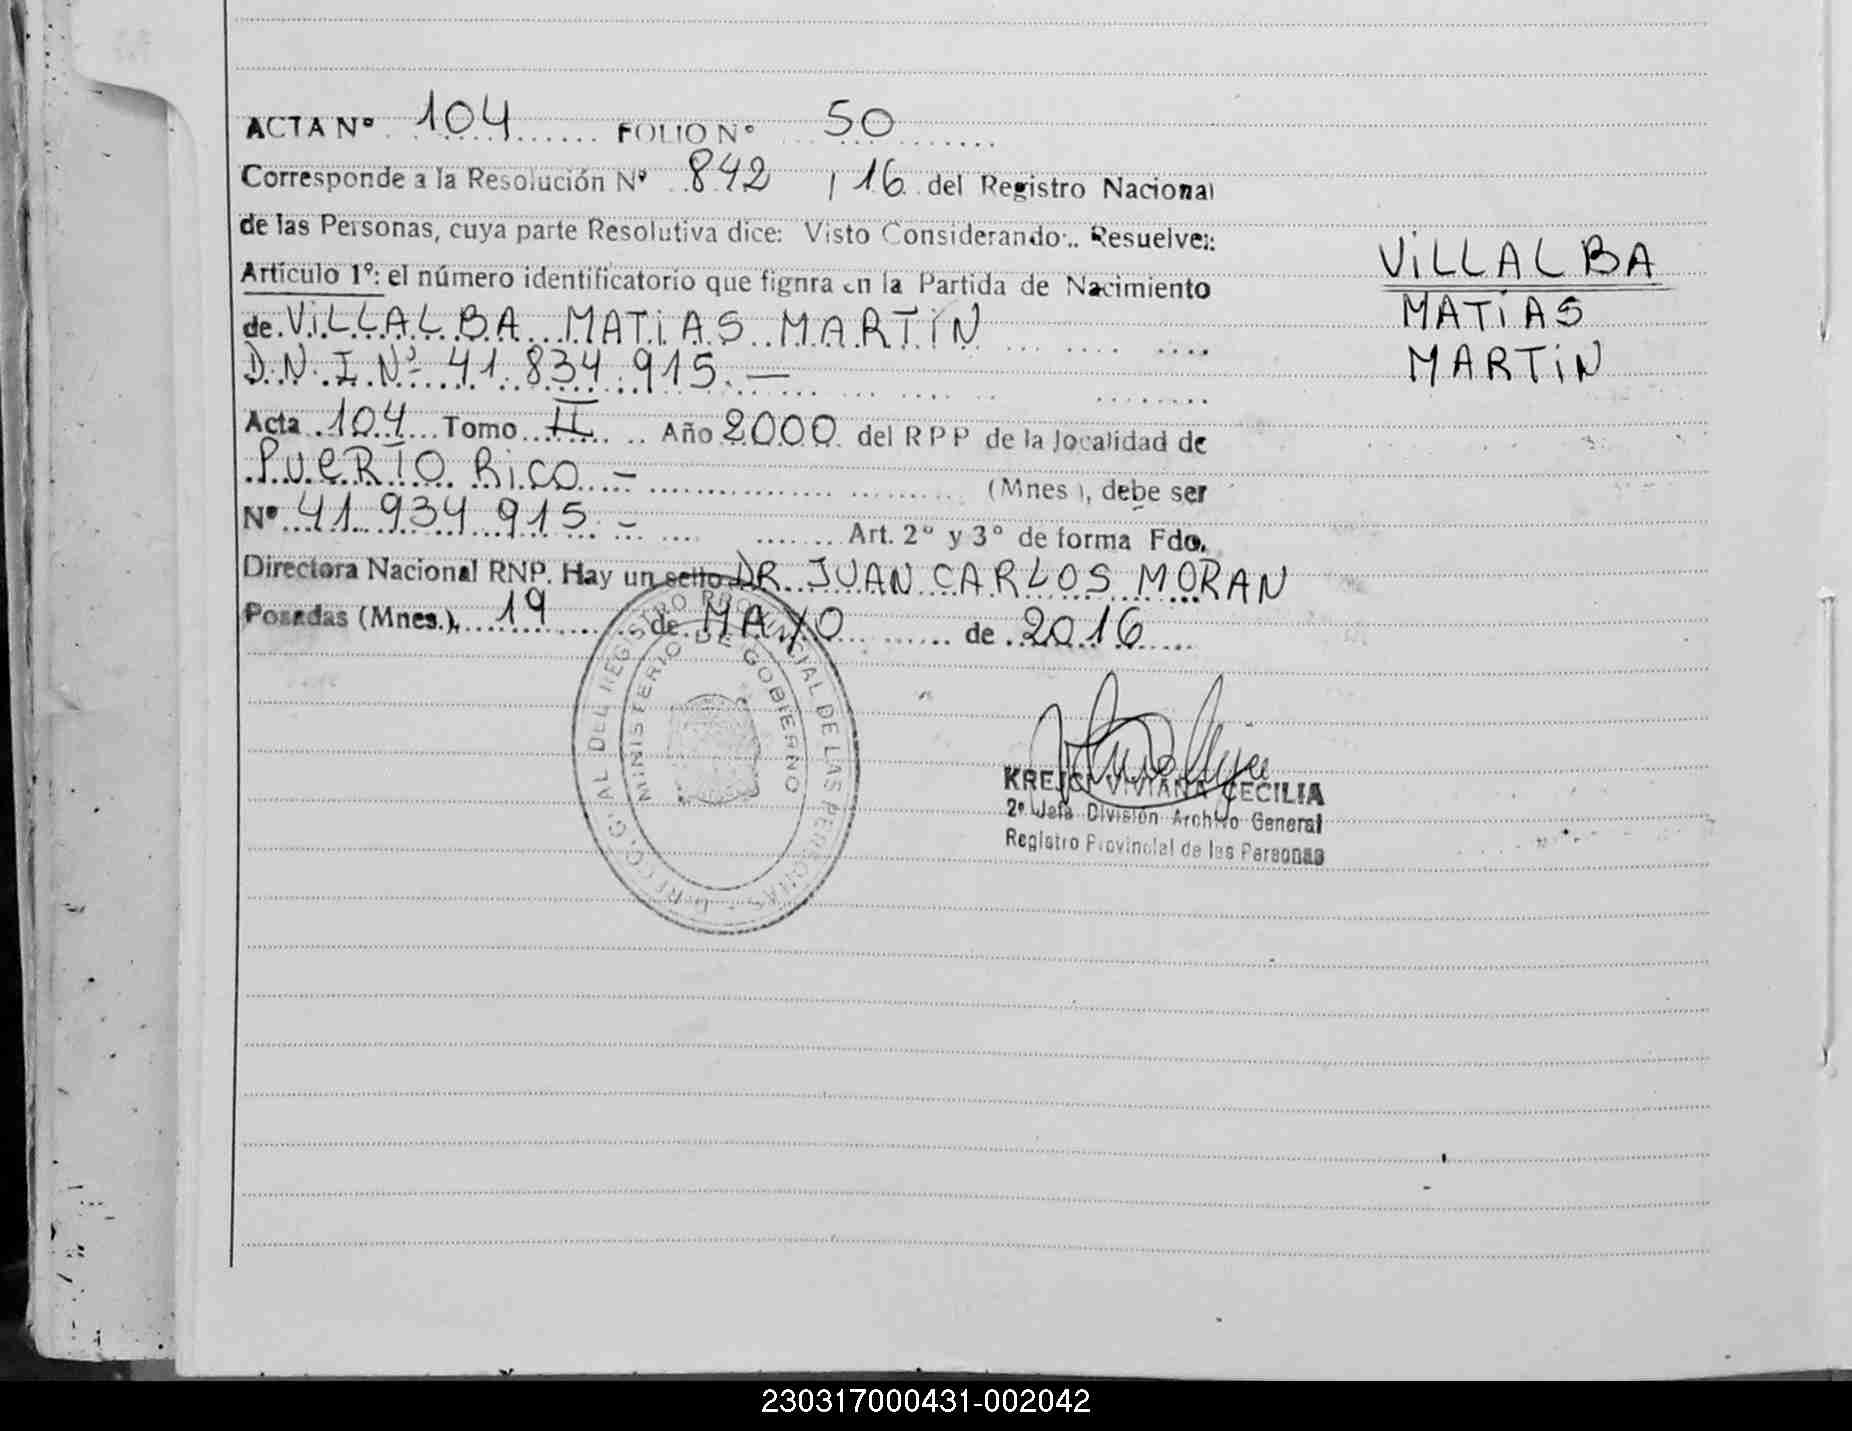 ACTA Nº 104 FOLIO Nº 50
Corresponde a la Resolución Nº 842 / 16 del Registro Nacional
de las Personas, cuya parte Resolutiva dice: Visto Considerando.. Resuelve::
Artículo 1º: el número identificatorio que fignra en la Partida de Nacimiento
de VILLALBA MATIAS MARTIN
D.N.I Nº 41 834 915.—
Acta 104 Tomo II Año 2000 del RPP de la localidad de
PUERTO RICO.— (Mnes), debe ser
Nº 41 934 915.— Art. 2º y 3º de forma Fdo.
Directora Nacional RNP. Hay un sello DR. JUAN CARLOS MORAN
Posadas (Mnes.), 19 de MAYO de 2016
VILLALBA
MATIAS
MARTIN
AL DEL REGISTRO PROVINCIAL DE LAS PERSONAS
MINISTERIO DE GOBIERNO
KREJCI VIVIANA CECILIA
2º Jefa División Archivo General
Registro Provincial de las Personas
230317000431-002042